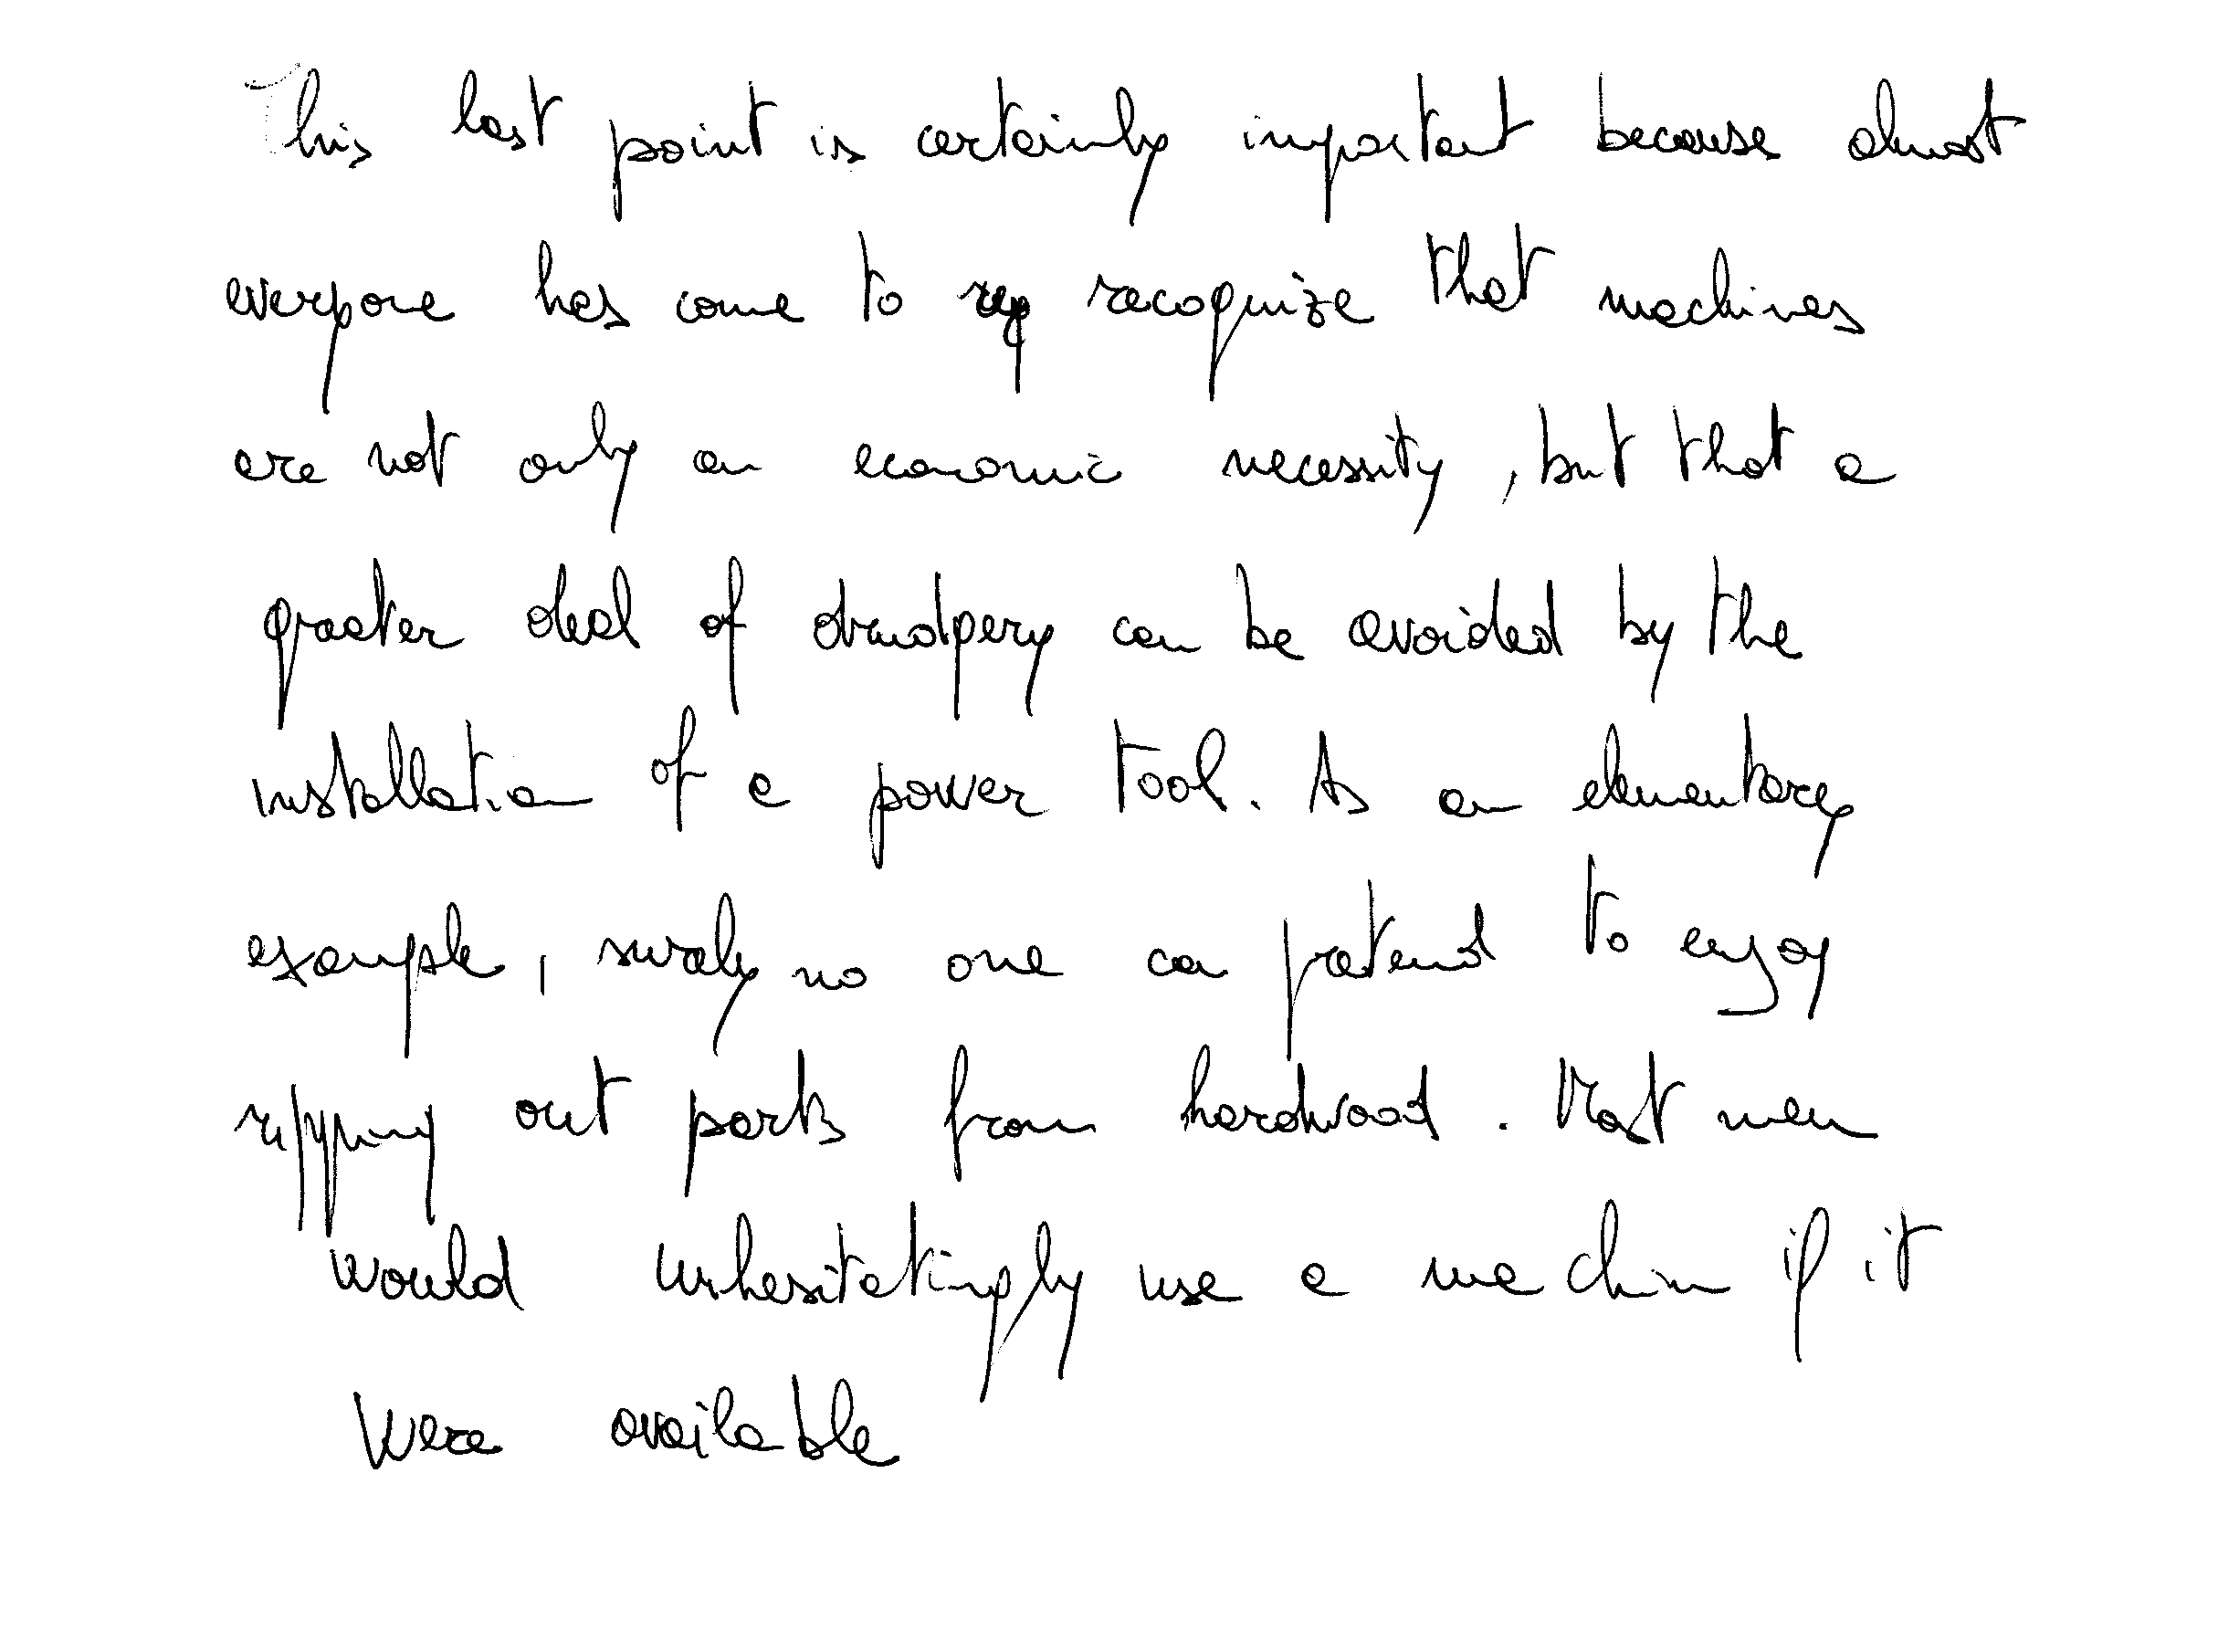 This last point is certainly important because almost
everyone has come to reg recognize that machines
are not only an economic necessity, but that a
greater deal of drudgery can be avoided by the
installation of a power tool. As an elementary
example, surely no one can pretend to enjoy
ripping out parts from hardwood. Most men
would unhesitatingly use a machin if it
were available